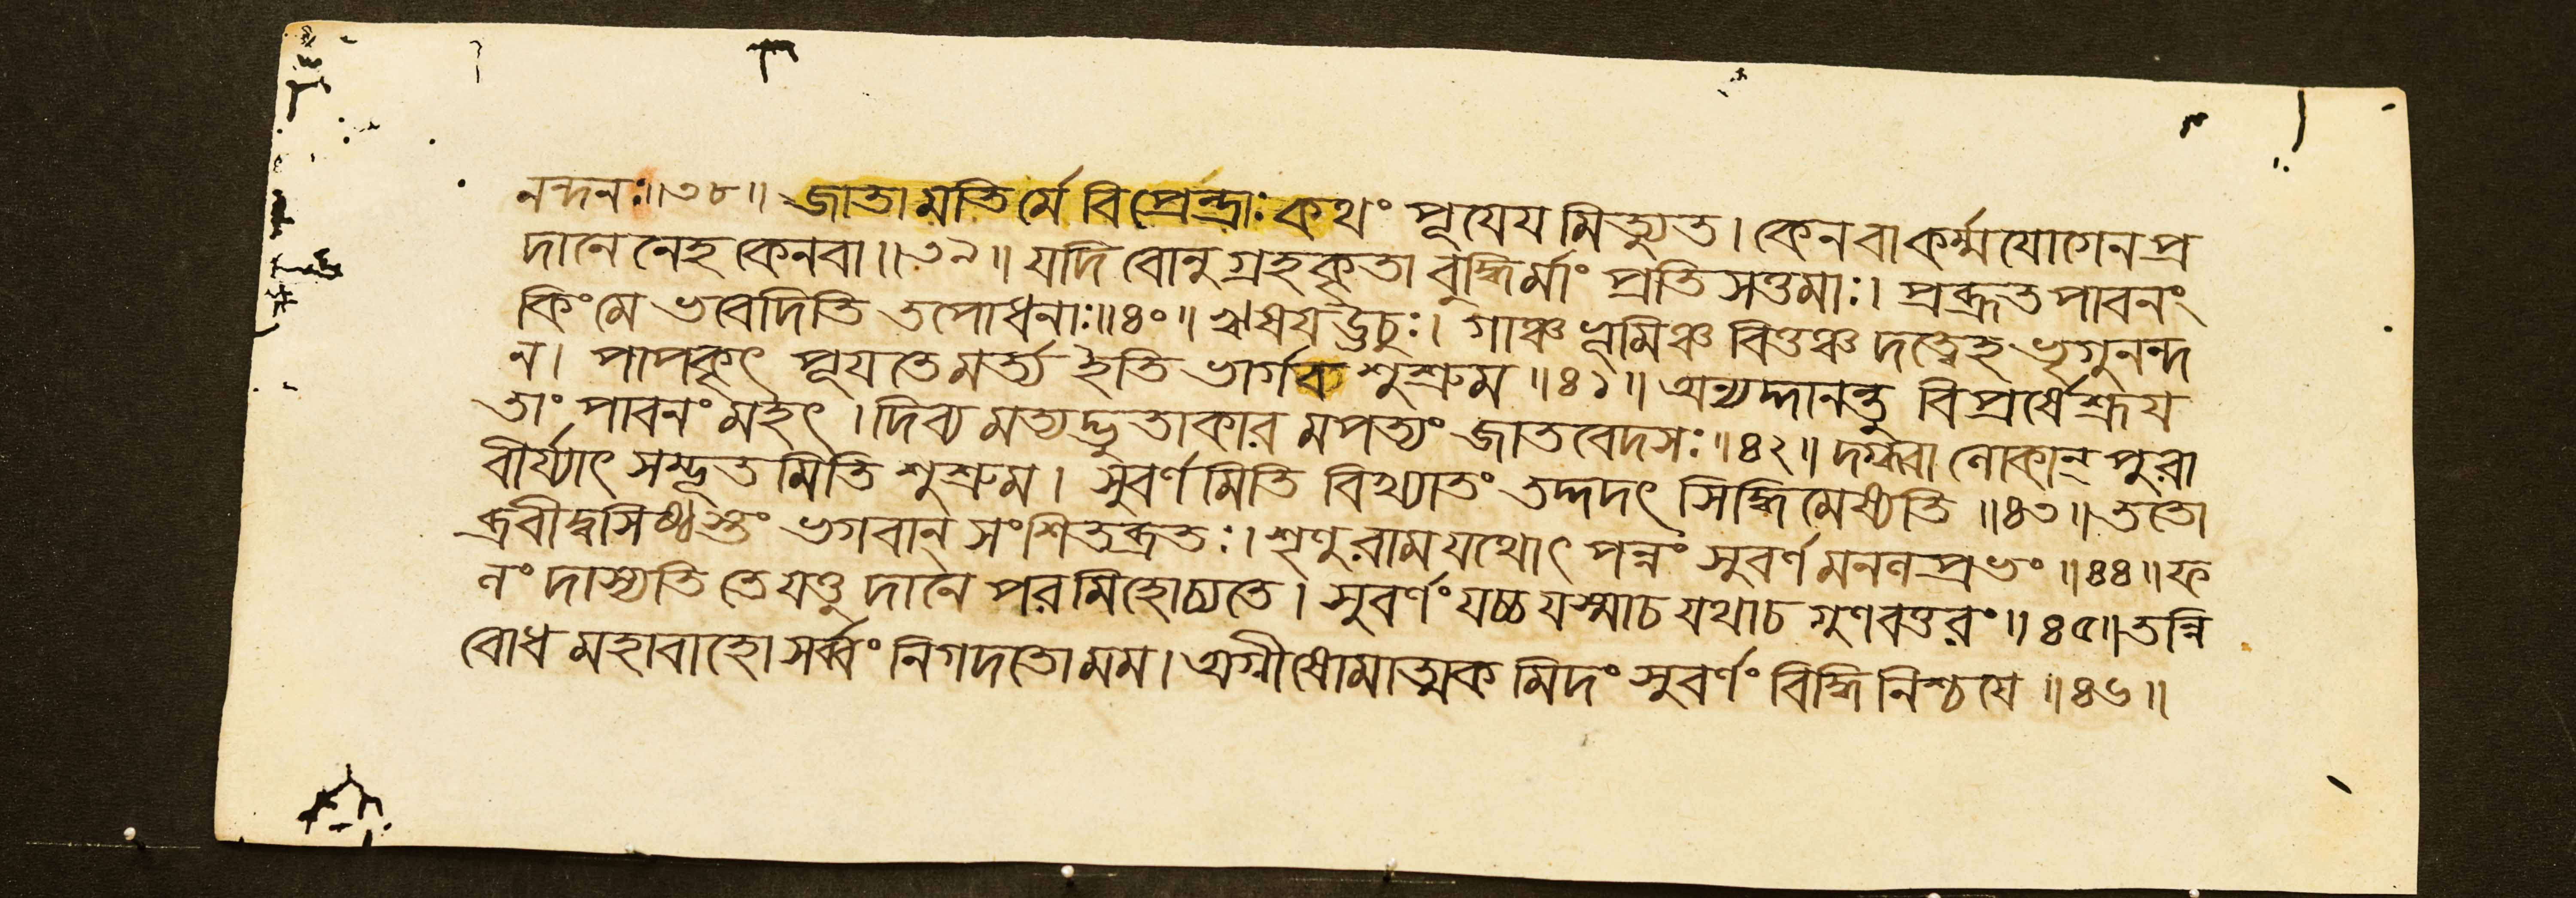 নন্দনঃ॥৩৮॥ জাতা মতির্মে বিপ্রেন্দ্রাঃ কথং পূযেয মিত্যুত। কেন বা কর্ম্ম যোগেন প্র
দানে নেহ কেনবা॥৩৯॥ যদি বোনু গ্রহকৃতা বুদ্ধির্মাং প্রতি সত্তমাঃ। প্রব্রূত পাবনং
কিং মে ভবেদিতি তপোধনাঃ॥৪০॥ ঋষয ঊচুঃ। গাঞ্চ ভূমিঞ্চ বিত্তঞ্চ দত্ত্বেহ ভৃগুনন্দ
ন। পাপকৃৎ পূযতে মর্ত্ত্য ইতি ভার্গব শুশ্রুম॥৪১॥ অন্যদ্দানন্তু বিপ্রর্ষে শ্রূয
তাং পাবনং মহৎ। দিব্য মত্যদ্ভুতাকার মপত্যং জাতবেদসঃ॥৪২॥ দগ্ধ্বা লোকান্ পুরা
বীর্য্যাৎ সম্ভূত মিতি শুশ্রুম। সুবর্ণ মিতি বিখ্যাতং তদ্দদৎ সিদ্ধি মেষ্যতি॥৪৩॥ ততো
ব্রবীদ্বসিষ্ঠস্তং ভগবান্ সংশিতব্রতঃ। শৃণু রাম যথোৎপন্নং সুবর্ণ মনলপ্রভং॥৪৪॥ ফ
লং দাস্যতি তে যত্তু দানে পর মিহোচ্যতে। সুবর্ণং যচ্চ যস্মাচ যথাচ গুণবত্তরং॥৪৫॥ তন্নি
বোধ মহাবাহো সর্ব্বং নিগদতো মম। অগ্নীষোমাত্মক মিদং সুবর্ণং বিদ্ধি নিশ্চযে॥৪৬॥